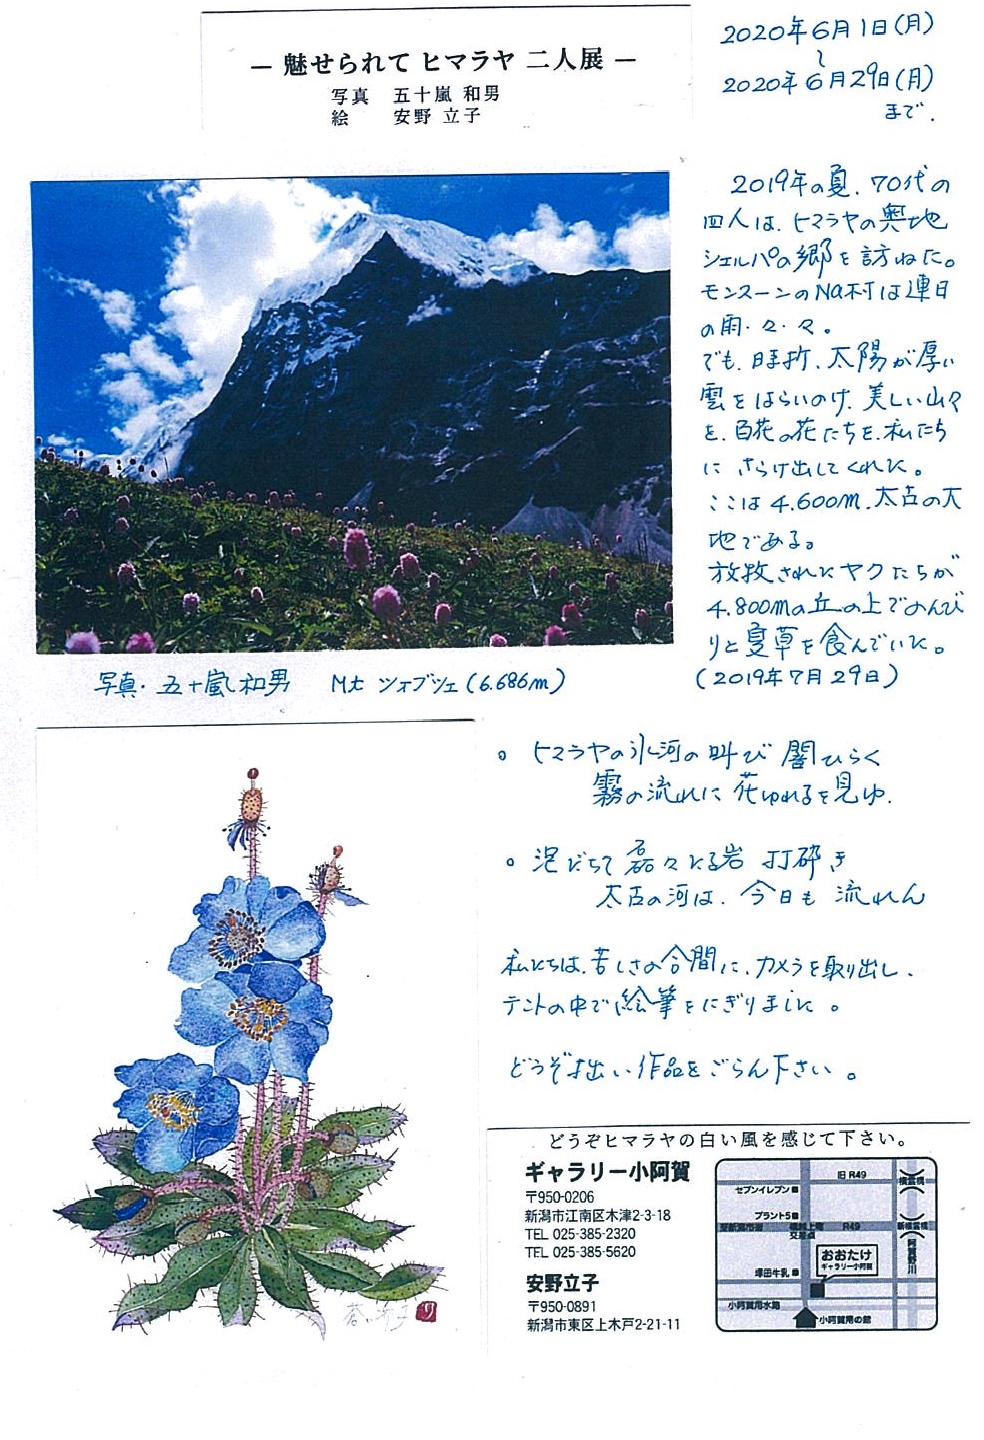 ― 魅せられて ヒマラヤ 二人展 ―
写真 五十嵐 和男
絵 安野 立子
2020年6月1日(月)
〜
2020年6月29日(月)
まで.
2019年の夏、70代の
四人は、ヒマラヤの奥地
シェルパの郷を訪ねた。
モンスーンのNa村は連日
の雨・々・々。
でも、時折、太陽が厚い
雲をはらいのけ、美しい山々
を、百花の花たちを、私たち
にさらけ出してくれた。
ここは4.600m、太古の大
地である。
放牧されたヤクたちが
4.800mの丘の上でのんび
りと夏草を食んでいた。
(2019年7月29日)
写真・五十嵐和男 Mt ツォブツェ(6.686m)
。ヒマラヤの氷河の叫び 闇ひらく
霧の流れに 花ゆれるを見ゆ.
。泥だちて 磊々たる岩 打砕き
太古の河は、今日も 流れん
私たちは、苦しさの合間に、カメラを取り出し、
テントの中で絵筆をにぎりました。
どうぞ拙い作品をごらん下さい。
どうぞヒマラヤの白い風を感じて下さい。
ギャラリー小阿賀
〒950-0206
新潟市江南区木津2-3-18
TEL 025-385-2320
TEL 025-385-5620
安野立子
〒950-0891
新潟市東区上木戸2-21-11
旧 R49
横雲橋
セブンイレブン
プラント5
R49
新横雲橋
交差点
阿賀野川
おおたけ
ギャラリー小阿賀
塚田牛乳
小阿賀用水路
小阿賀用の館